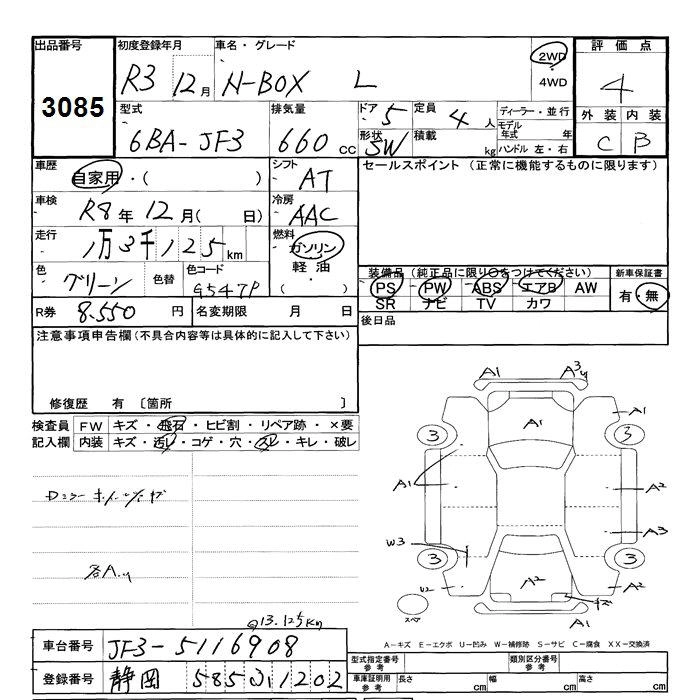 出品番号 初度登録年月 車名・グレード 評価点
3085 R3 12月 N-BOX L 2WD 4WD 4
型式 排気量 ドア 5 定員 4人 ディーラー・並行 外装 内装
6BA-JF3 660cc 形状 SW 積載 kg モデル年式 年 ハンドル 左・右 C B
車歴 自家用・( ) シフト AT セールスポイント (正常に機能するものに限ります)
車検 R8年12月( 日) 冷房 AAC
走行 1万3千125km 燃料 ガソリン 軽油 ( )
色 グリーン 色替 色コード G547P
装備品 (純正品に限り○をつけてください) 新車保証書
PS PW ABS エアB AW 有・無
SR ナビ TV カワ
R券 8.550円 名変期限 月 日 後日品
注意事項申告欄(不具合内容等は具体的に記入して下さい)
修復歴 有 〔箇所 〕
検査員 FW キズ・飛石・ヒビ割・リペア跡・×要
記入欄 内装 キズ・汚レ・コゲ・穴・スレ・キレ・破レ
A1 A3
A1 A1
3 3
A1 A2
A3
W3
3 3
U2 A2 A2
A1
スペア
@13.125km
A-キズ E-エクボ U-凹み W-補修跡 S-サビ C-腐食 XX-交換済
車台番号 JF3-5116908 型式指定番号 参考 類別区分番号 参考
登録番号 静岡 585 1202 車庫証明用 参考 長さ cm 幅 cm 高さ cm